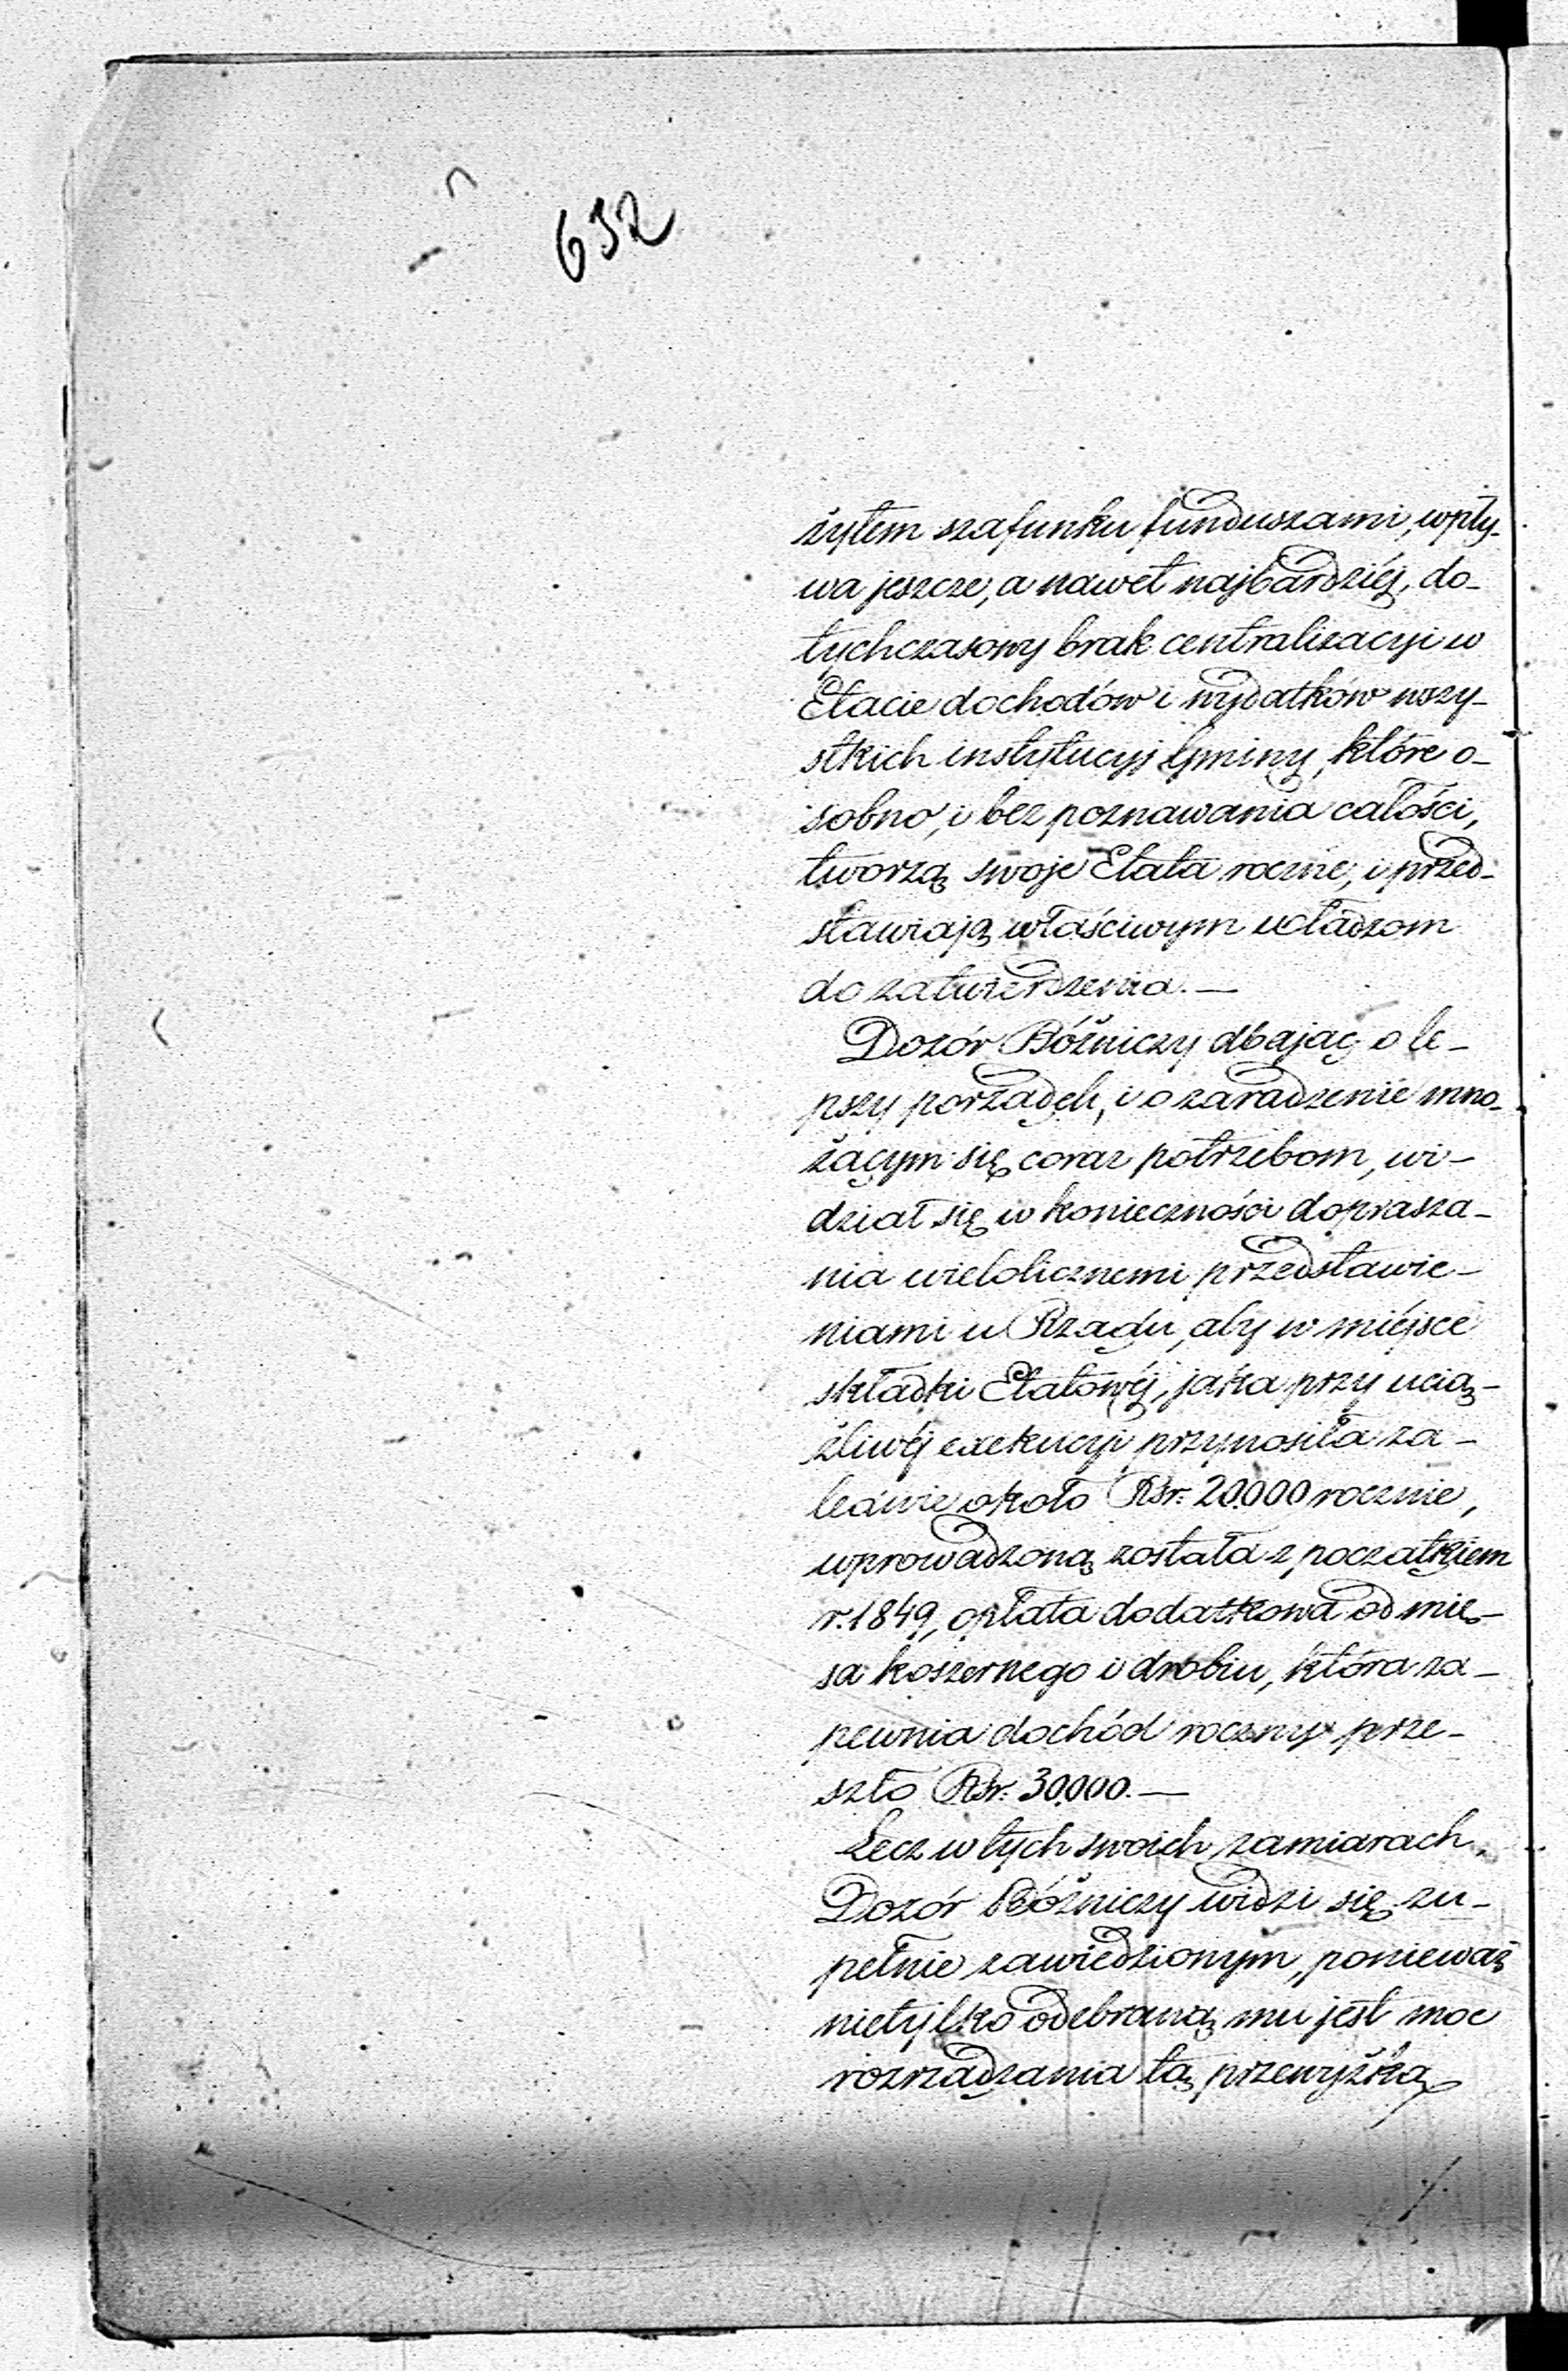 632
żytem szafunku funduszami, wpły-
wa jeszcze, a nawet najbardziéj, do-
tychczasowy brak centralizacyi w
Etacie dochodów i wydatków wszy-
stkich instytucyj Gminy, które o-
sobno, i bez poznawania całości,
tworzą swoje Etata roczne, i przed-
stawiają właściwym władzom
do zatwierdzenia.—
Dozór Bóżniczy dbając o le-
pszy porządek, i o zaradzenie mno-
żącym się coraz potrzebom, wi-
dział się w konieczności doprasza-
nia wielolicznemi przedstawie-
niami u Rządu, aby w miéjsce
składki Etatowéj, jaka przy ucią-
żliwéj exekucyi przynosiła za-
ledwie około Rsr: 20.000 rocznie,
wprowadzoną została z początkiem
r. 1849, opłata dodatkowa od mię-
sa koszernego i drobiu, która za-
pewnia dochód roczny prze-
szło Rsr: 30.000.—
Lecz w tych swoich zamiarach,
Dozór Bóżniczy widzi się zu-
pełnie zawiedzionym, ponieważ
nietylko odebraną mu jest moc
rozrządzania tą przewyżką